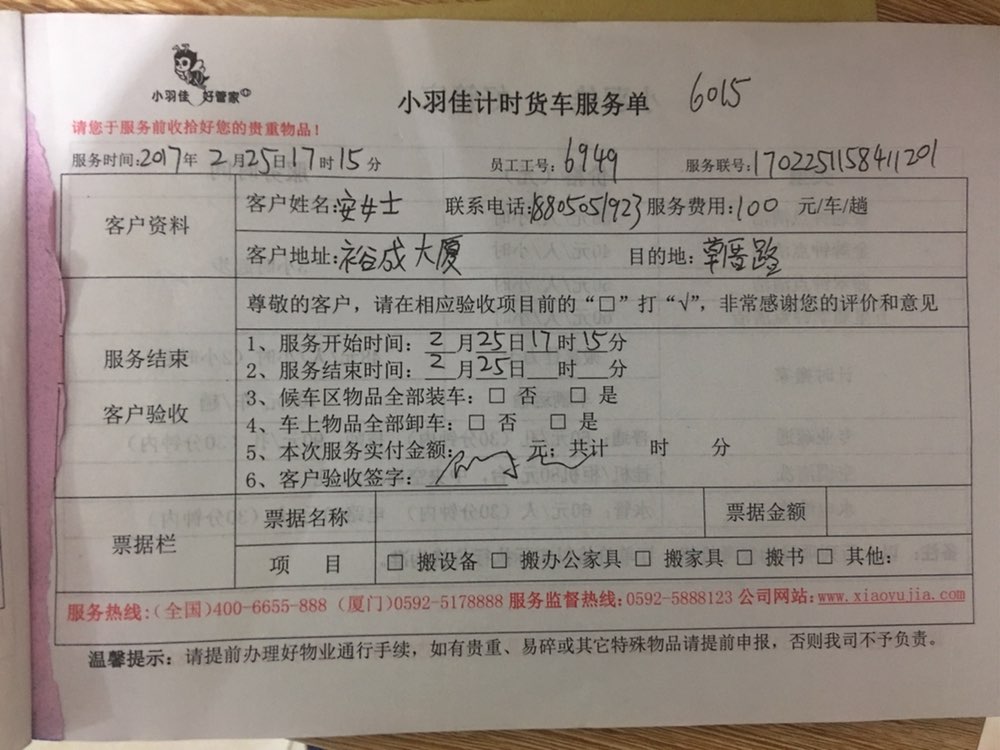 小羽佳 好管家
小羽佳计时货车服务单 6015
请您于服务前收拾好您的贵重物品！
服务时间:2017年 2月25日17时15分 员工工号:6949 服务联号:1702251158411201
客户资料
客户姓名:安女士 联系电话:18805051923 服务费用:100 元/车/趟
客户地址:裕成大厦 目的地:草埔路
尊敬的客户，请在相应验收项目前的“□”打“√”，非常感谢您的评价和意见
服务结束
客户验收
1、服务开始时间：2月25日17时15分
2、服务结束时间：2月25日__时__分
3、候车区物品全部装车：□ 否 □ 是
4、车上物品全部卸车：□ 否 □ 是
5、本次服务实付金额: 元；共计 时 分
6、客户验收签字：
票据栏
票据名称 票据金额
项 目 □ 搬设备 □ 搬办公家具 □ 搬家具 □ 搬书 □ 其他：
服务热线:(全国)400-6655-888 (厦门)0592-5178888 服务监督热线:0592-5888123 公司网站:www.xiaoyujia.com
温馨提示：请提前办理好物业通行手续，如有贵重、易碎或其它特殊物品请提前申报，否则我司不予负责。